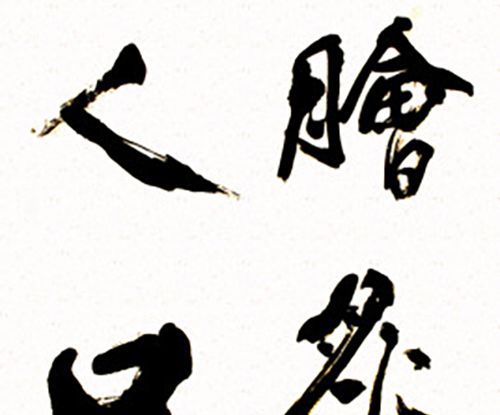 膾炙
人口